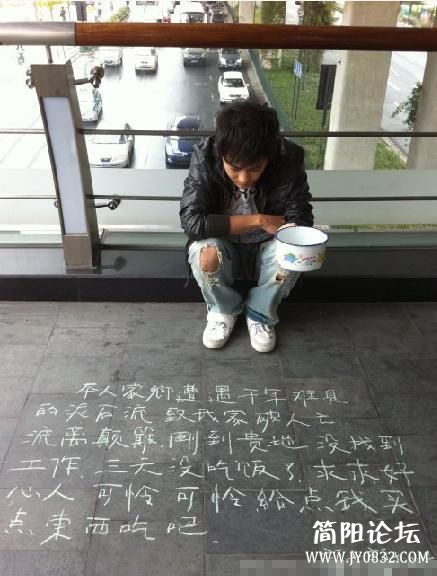 本人家鄉遭遇千年难見
的泥石流致我家破人亡
流離颠簸,剛到贵地没找到
工作,三天没吃饭了,求求好
心人可怜可怜给点钱买
点東西吃吧.
简阳论坛
WWW.JY0832.COM